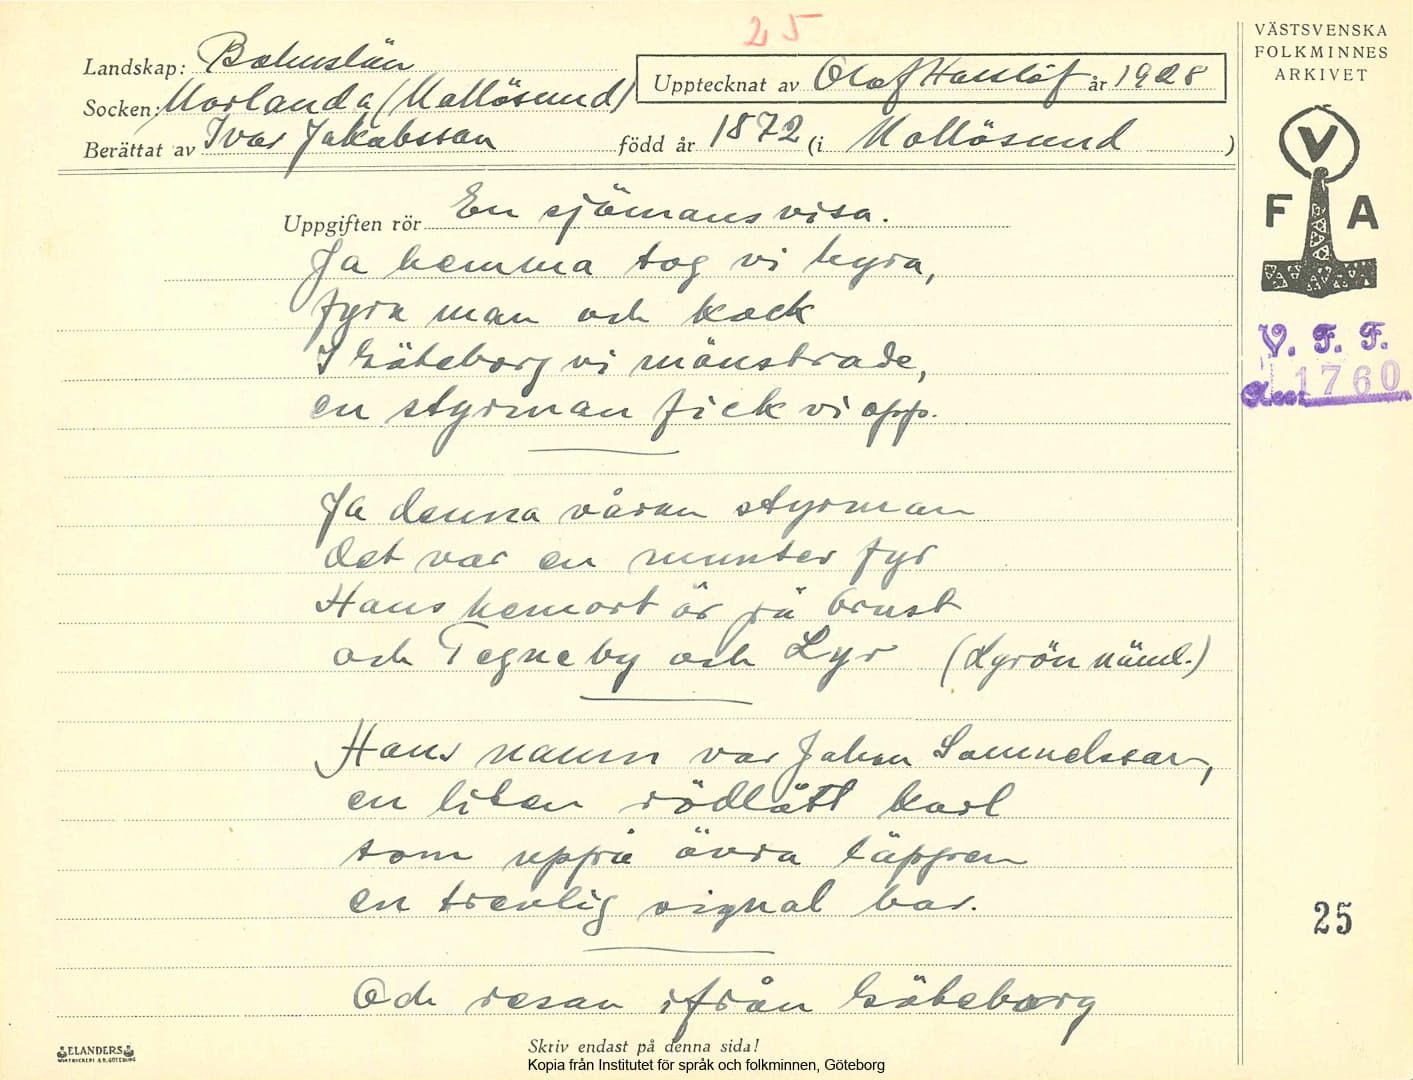 25
Landskap: Bohuslän
Socken: Morlanda (Mollösund)
Upptecknat av Olof Hasslöf år 1928
Berättat av Ivar Jakobsson född år 1872 (i Mollösund)
Uppgiften rör En sjömansvisa.
Ja hemma tog vi hyra,
fyra man och kock
I Göteborg vi mönstrade,
en styrman fick vi opp.
Ja denna våran styrman
det var en munter fyr
Hans hemort är på Orust
och Tegneby och Lyr (Lyrön näml.)
Hans namn var Johan Samuelsson,
en liten rödlätt karl
som uppå övra läppen
en trevlig signal bar.
Och resan ifrån Göteborg
Skriv endast på denna sida!
Kopia från Institutet för språk och folkminnen, Göteborg
ELANDERS
VÄSTSVENSKA
FOLKMINNES
ARKIVET
V
F A
V. F. F.
Acc 1760
25